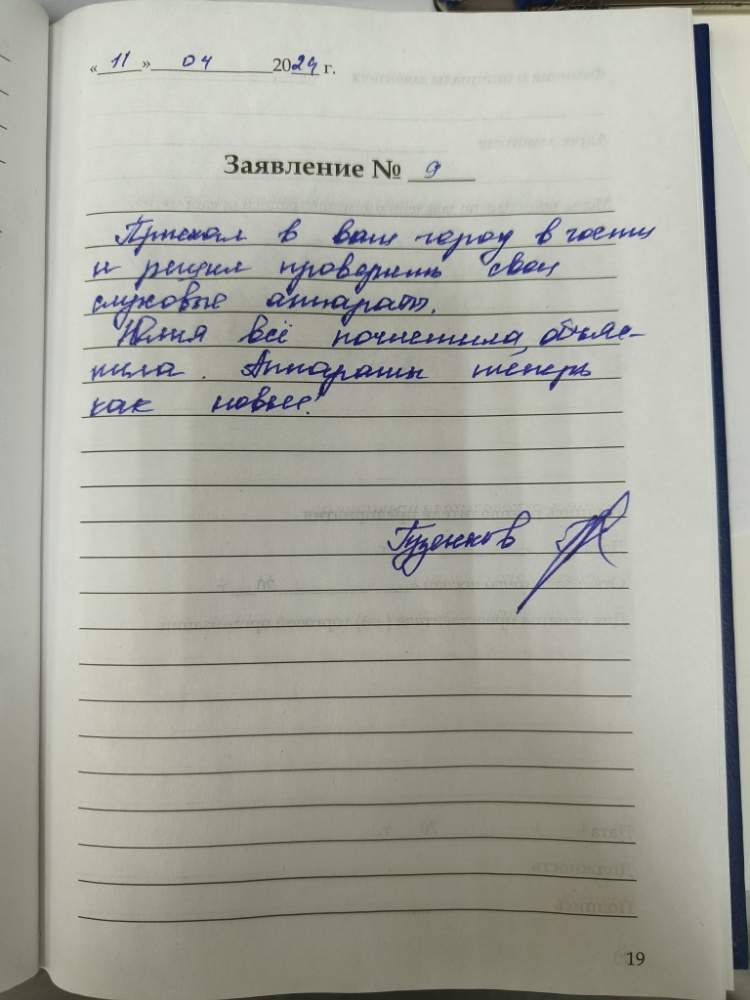 «11» 04 2024 г.
Заявление № 9
Приехал в ваш город в гости
и решил проверить свои
слуховые аппараты.
Юлия всё почистила, объяс-
нила. Аппараты теперь
как новые!
Гузенков
19